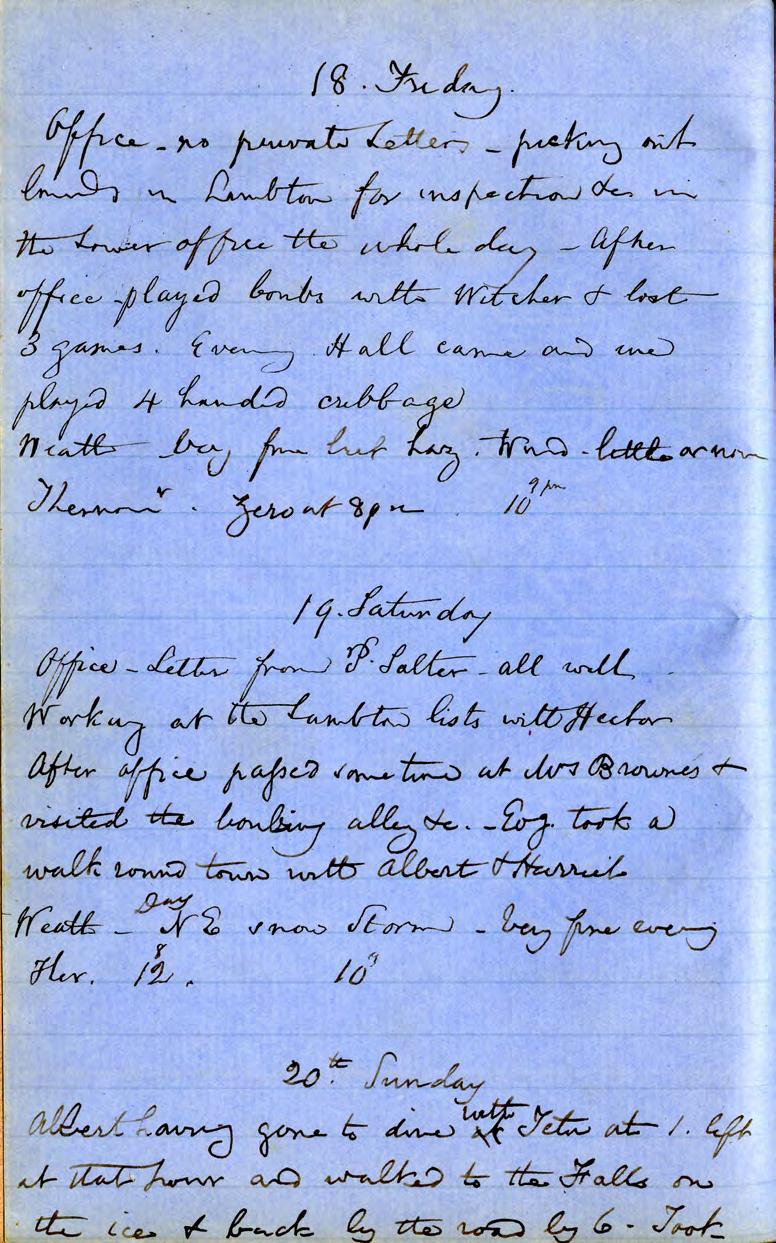 18. Friday.
Office - no private Letters - picking out
lands in Lambton for inspection &c in
the Lower office the whole day - After
office played bowls with Witcher & lost
3 games. Evening Hall came and we
played 4 handed cribbage
Weath very fine but hazy. Wind - little or none
Thermomr. Zero at 8 pm 10 9 pm
19. Saturday
Office - Letter from P. Salter - all well
Working at the Lambton lists with Hector
After office passed some time at Mrs Brownes &
visited the bowling alley &c. - Evg. took a
walk round town with Albert & Harriet
Weath - Day N E snow Storm - Very fine evening
Ther. 12 8. 10 9
20th Sunday
Albert having gone to dine with Tetu at 1. left
at that hour and walked to the Falls on
the ice & back by the road by 6 - Took